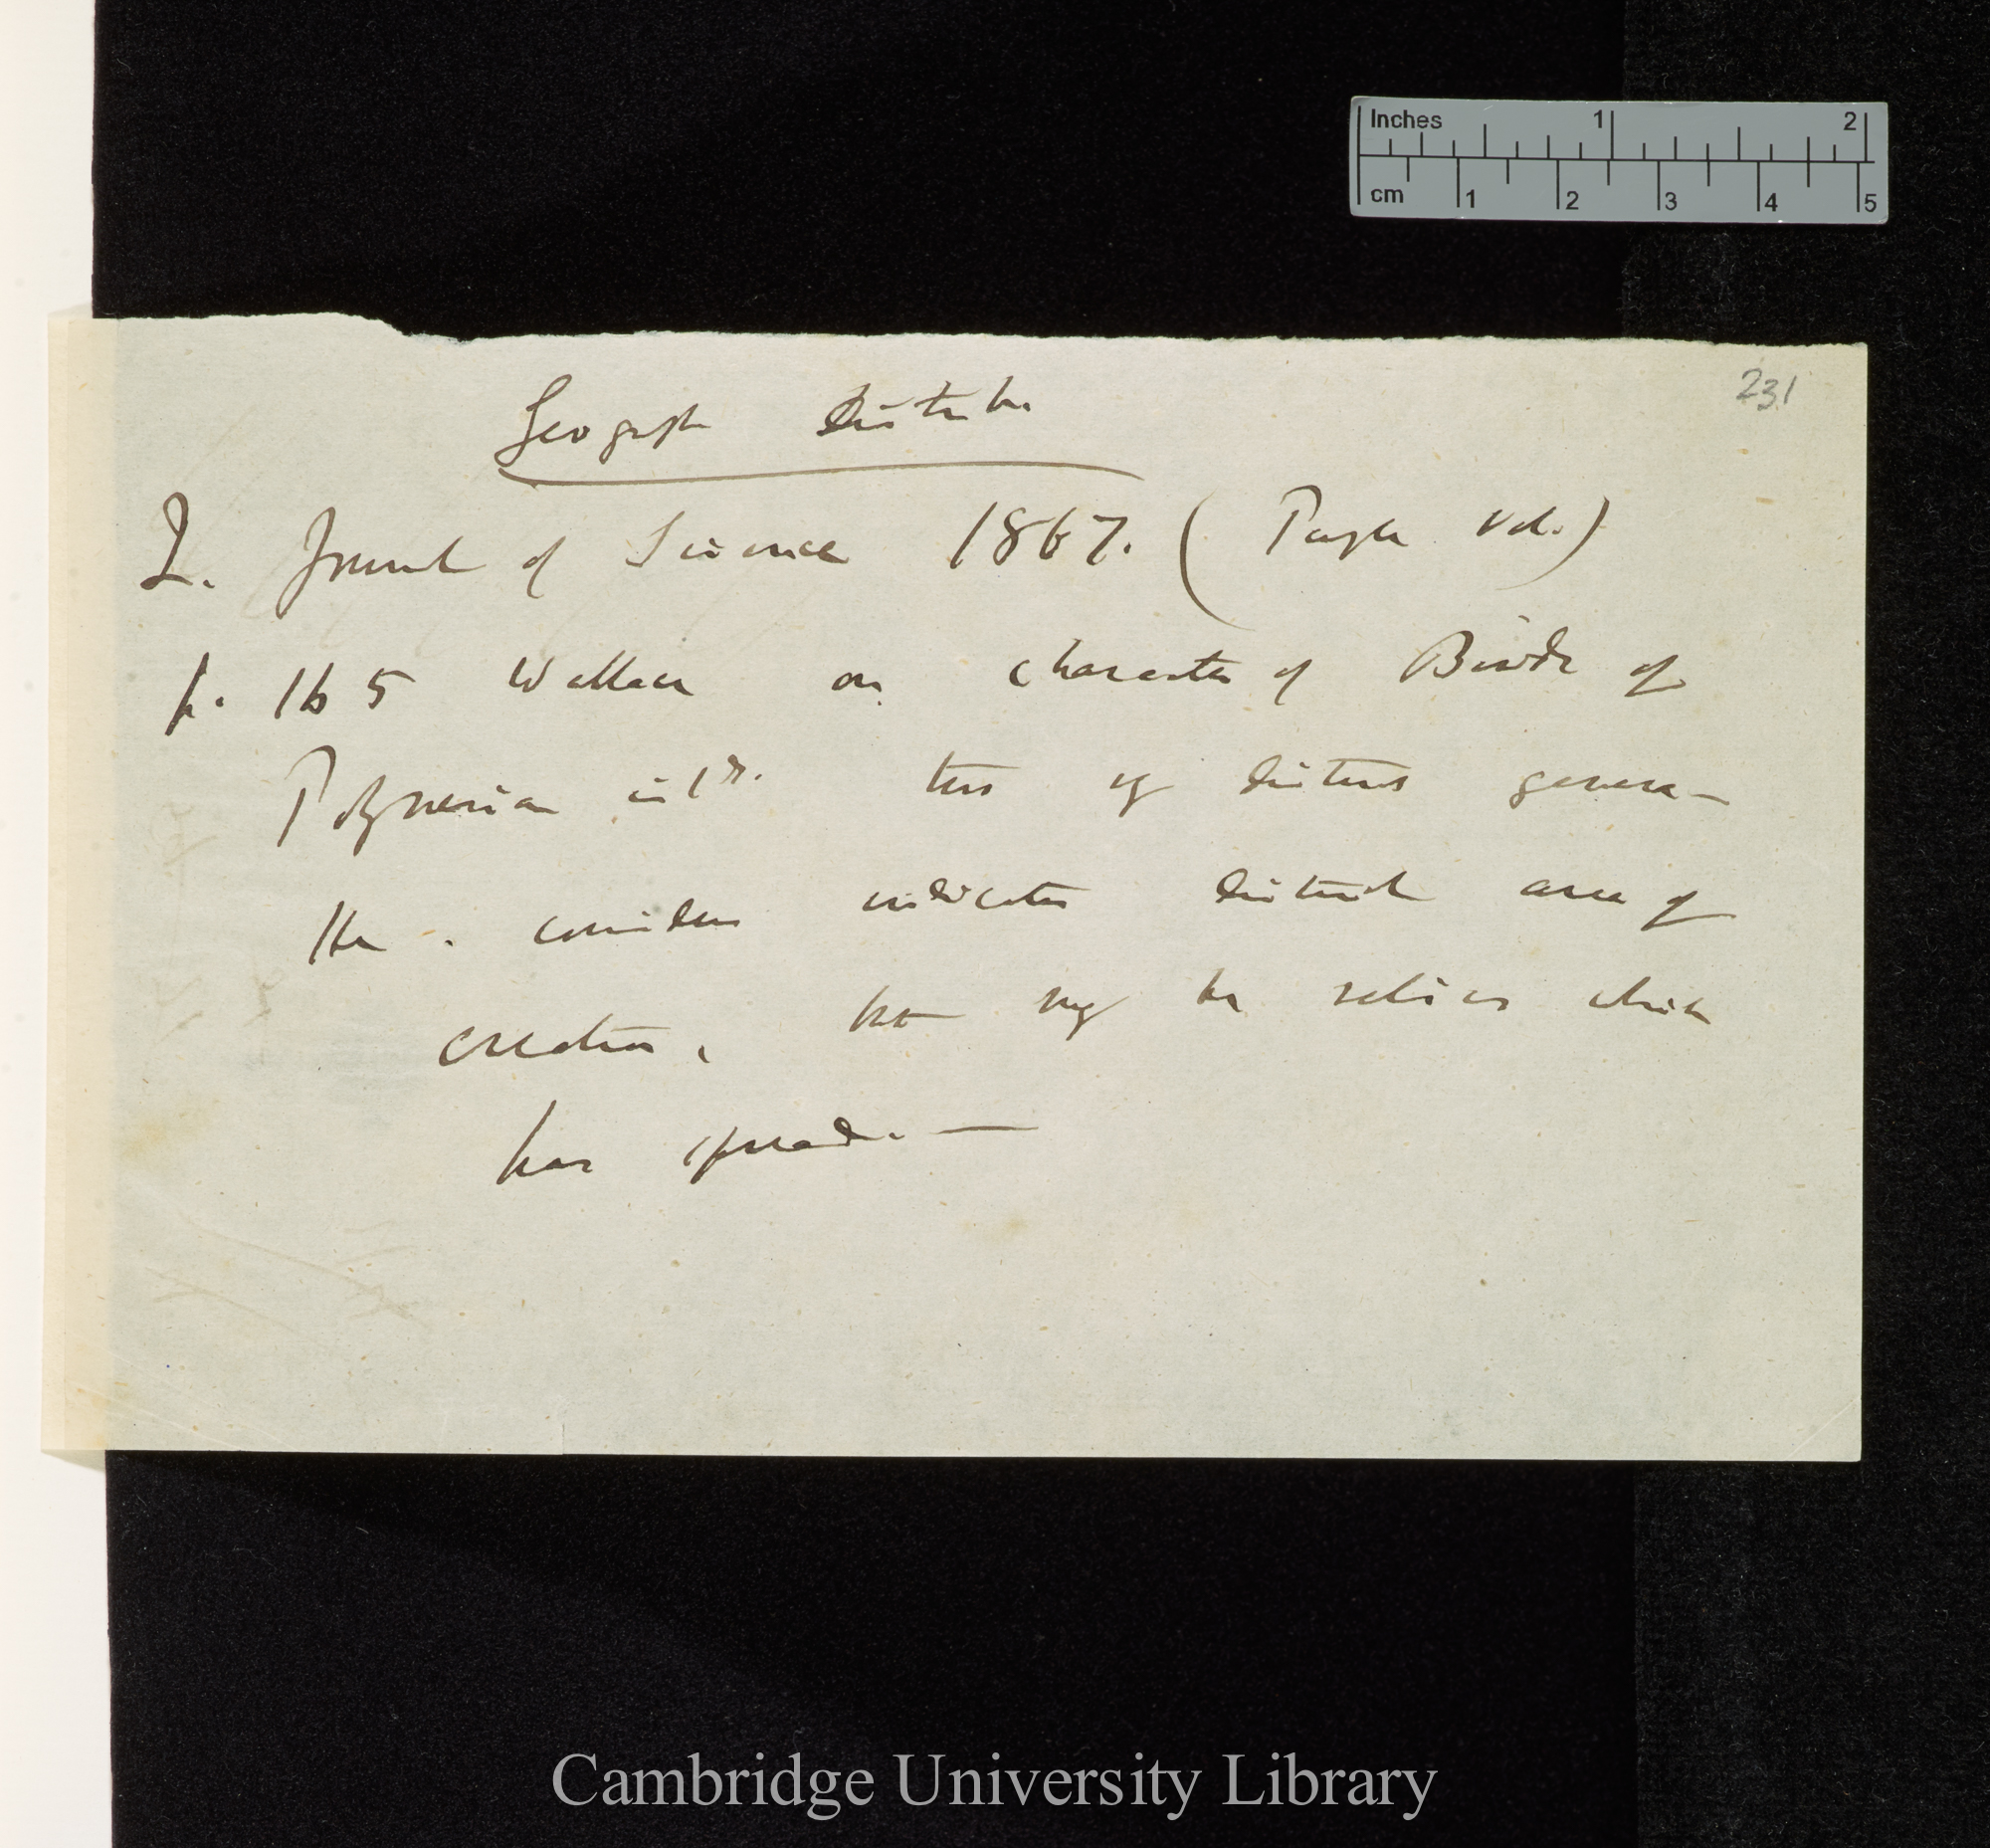 Inches 1 2
cm 1 2 3 4 5
231
Geograph Distrib.
Q. Journal of Science 1867. (Purple Vol.)
p. 165 Wallace on character of Birds of
Polynesian isl^ds. two of distinct genera —
He considers indicates distinct area of
creation, but may be relics which
has spread. —
Cambridge University Library